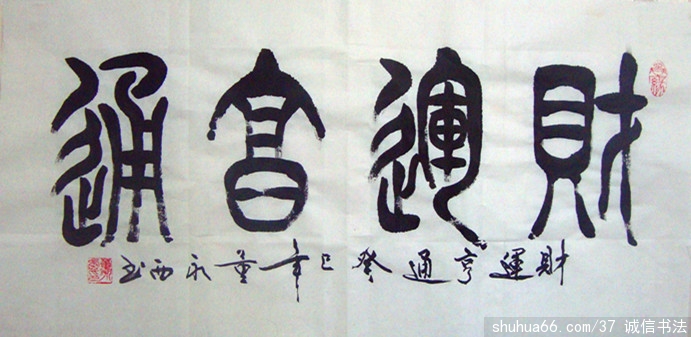 財運亨通
財運亨通癸巳年董永西书
shuhua66.com/37 诚信书法